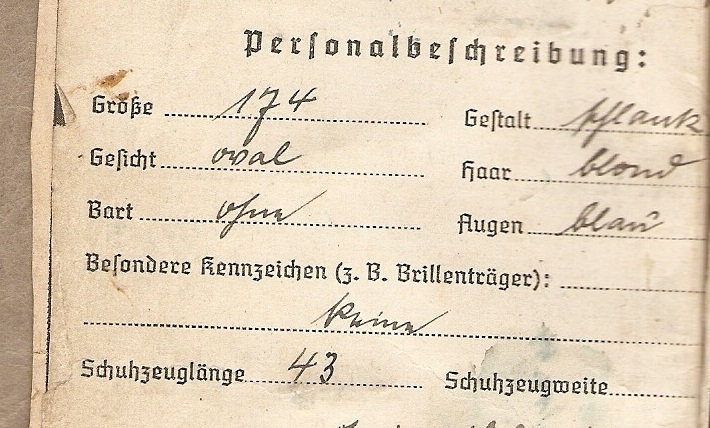 Personalbeschreibung:
Größe 174 Gestalt schlank
Gesicht oval Haar blond
Bart ohne Augen blau
Besondere Kennzeichen (z. B. Brillenträger):
keine
Schuhzeuglänge 43 Schuhzeugweite